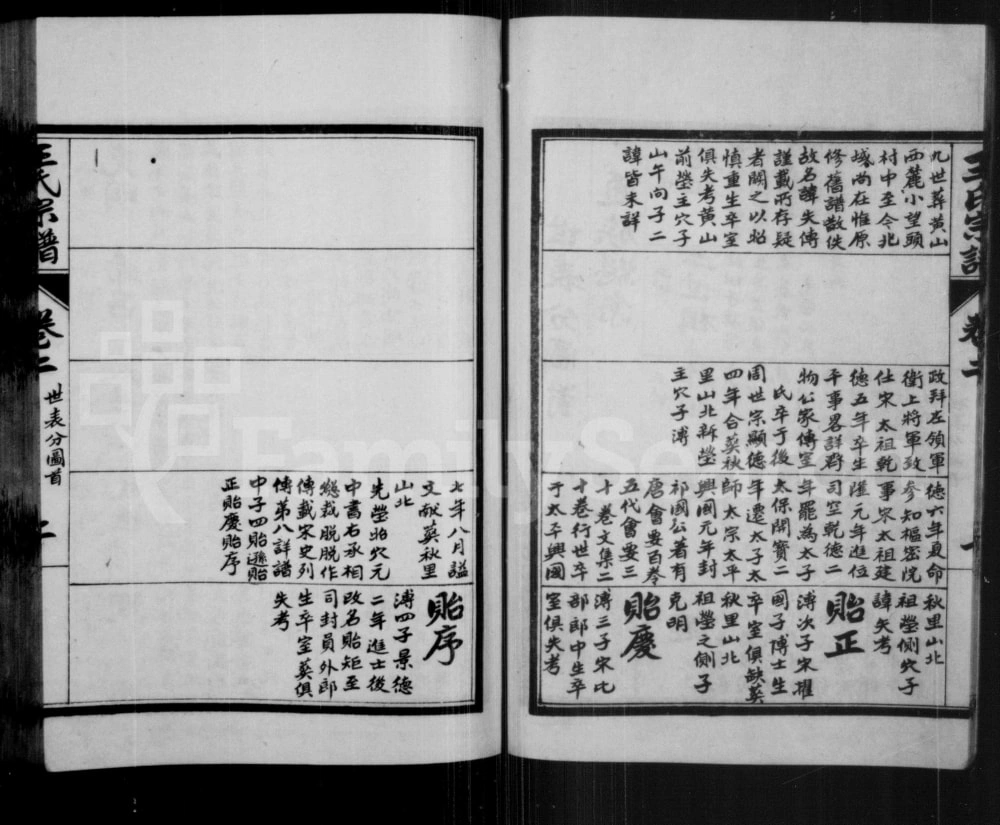 王氏宗譜
卷二
一
九世葬黃山
西麓小望頭
村中至今兆
域尚在惟原
修舊譜散佚
故名諱失傳
謹載所存疑
者闕之以昭
慎重生卒室
俱失考黃山
前塋主穴子
山午向子二
諱皆未詳
政拜左領軍
衛上將軍致
仕宋太祖乾
德五年卒生
平事畧詳齊
物公家傳室
氏卒于後
周世宗顯德
四年合葬秋
里山北新塋
主穴子溥
德六年夏命
參知樞密院
事宋太祖建
隆元年進位
司空乾德二
年罷為太子
太保開寶二
年遷太子太
師太宗太平
興國元年封
祁國公著有
唐會要百卷
五代會要三
十卷文集二
十卷行世卒
于太平興國
秋里山北
祖塋側穴子
諱矢考
貽正
溥次子宋擢
國子博士生
卒室俱缺葬
秋里山北
祖塋之側子
克明
貽慶
溥三子宋比
部郎中生卒
室俱失考
七年八月諡
文献葬秋里
山北
先塋昭穴元
中書右承相
總裁脫脫作
傳載宋史列
傳第八詳譜
中子四貽遜貽
正貽慶貽序
貽序
溥四子景德
二年進士後
改名貽矩至
司封員外郎
生卒室葬俱
失考
王氏宗譜
卷二
世表分圖首
二
FamilySe